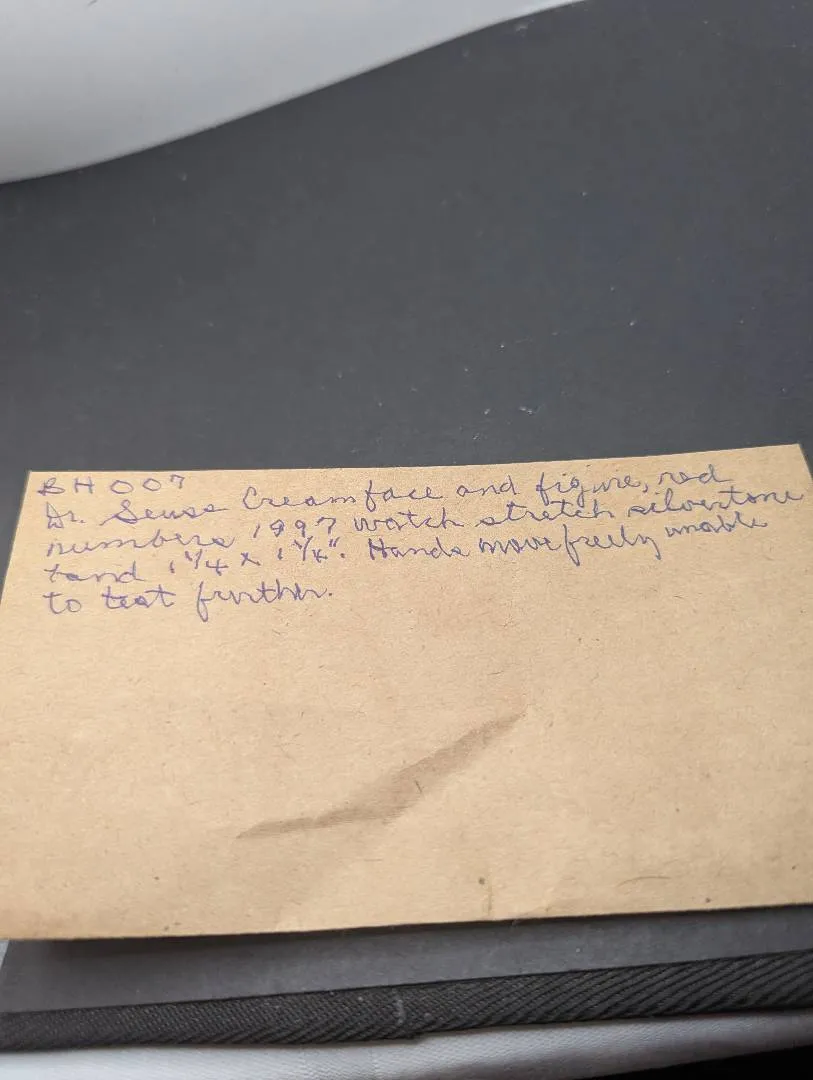 BH007
Dr. Seuss Cream face and figure, red
numbers 1997 watch stretch silvertone
band 1 1/4 x 1 1/4". Hands move freely unable
to test further.